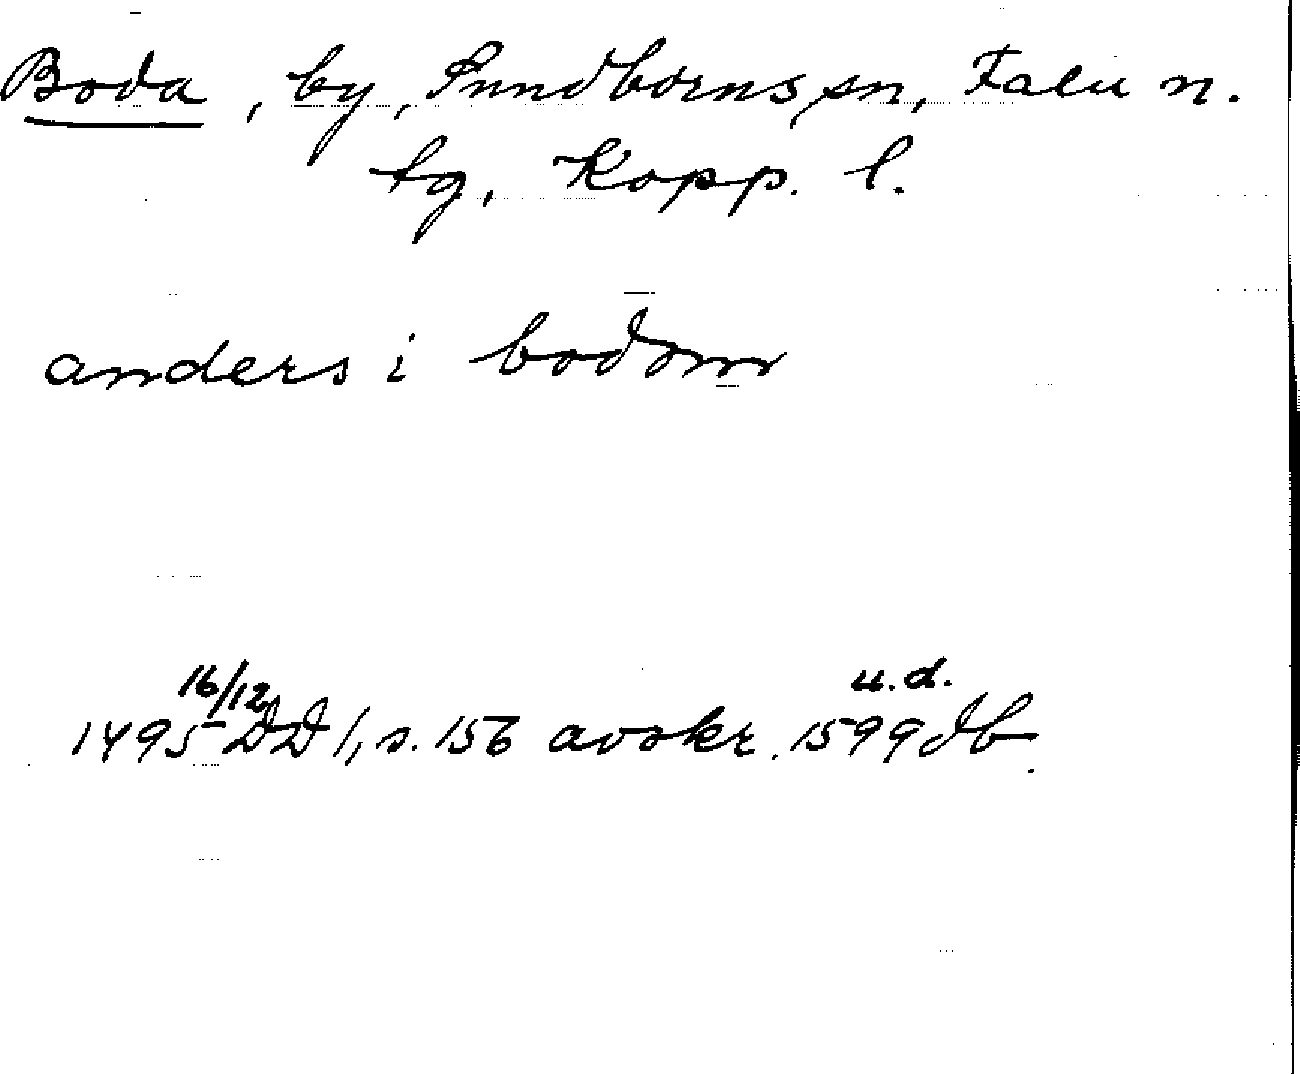 Boda, by, Sundborns sn, Falu n.
tg, Kopp. l.
anders i bodom
16/12 u.d.
1495 DD 1, s. 156 avskr. 1599 db.